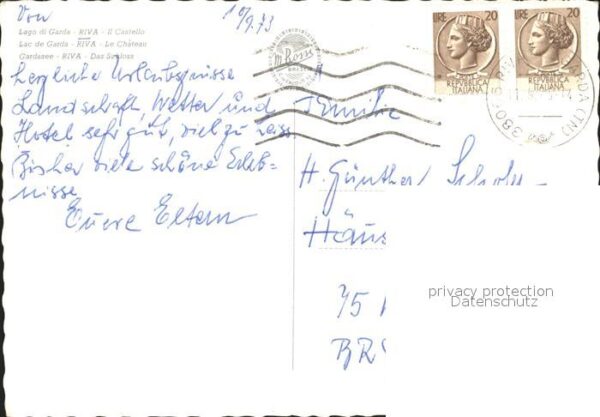 Von 10/9.73
Lago di Garda - RIVA - Il Castello
Lac de Garda - RIVA - Le Château
Gardasee - RIVA - Das Schloss
Herzliche Urlaubsgrüsse
Landschaft, Wetter und
Hotel sehr gut, viel zu heiss
Bisher viele schöne Erleb-
nisse
Eure Eltern
LIRE 20
REPVBBLICA
ITALIANA
20
REPVBBLICA
ITALIANA
Familie
H. Günther
Häus
75
BR
privacy protection
Datenschutz